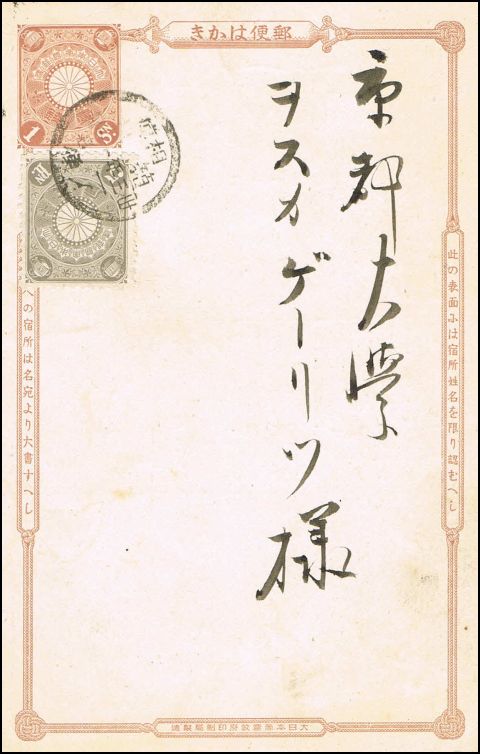 郵便はかき
京都大學
ヲスカゲーリツ様
此の表面ふは宿所姓名を限り認むへし
の宿所は名宛より大書すへし
1 Sⁿ
大日本帝國政府印刷局製造